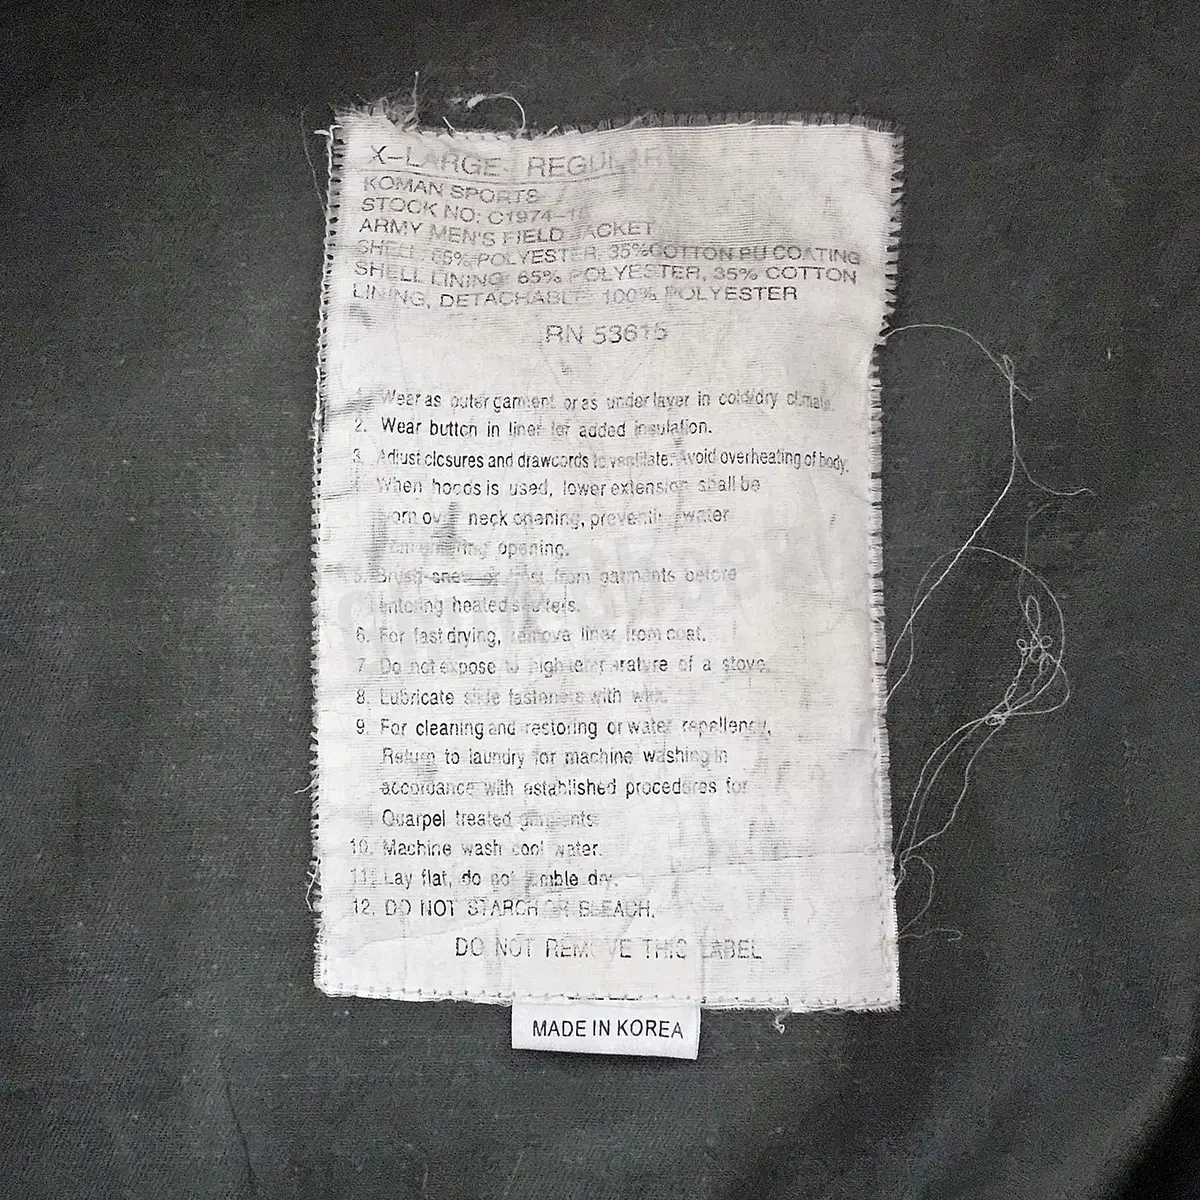 X-LARGE REGULAR
KOMAN SPORTS
STOCK NO: C1974-1
ARMY MEN'S FIELD JACKET
SHELL: 65% POLYESTER, 35%COTTON PU COATING
SHELL LINING: 65% POLYESTER, 35% COTTON
LINING, DETACHABLE: 100% POLYESTER
RN 53615
1. Wear as outer garment or as under layer in cold/dry climate.
2. Wear button in liner for added insulation.
3. Adjust closures and drawcords to ventilate. Avoid overheating of body.
4. When hoods is used, lower extension shall be
worn over neck opening, preventing water
from entering opening.
5. Brush snow or frost from garments before
entering heated shelters.
6. For fast drying, remove liner from coat.
7. Do not expose to high temperature of a stove.
8. Lubricate slide fasteners with wax.
9. For cleaning and restoring or water repellency,
Return to laundry for machine washing in
accordance with established procedures for
Quarpel treated garments
10. Machine wash cool water.
11. Lay flat, do not tumble dry.
12. DO NOT STARCH OR BLEACH.
DO NOT REMOVE THIS LABEL
MADE IN KOREA